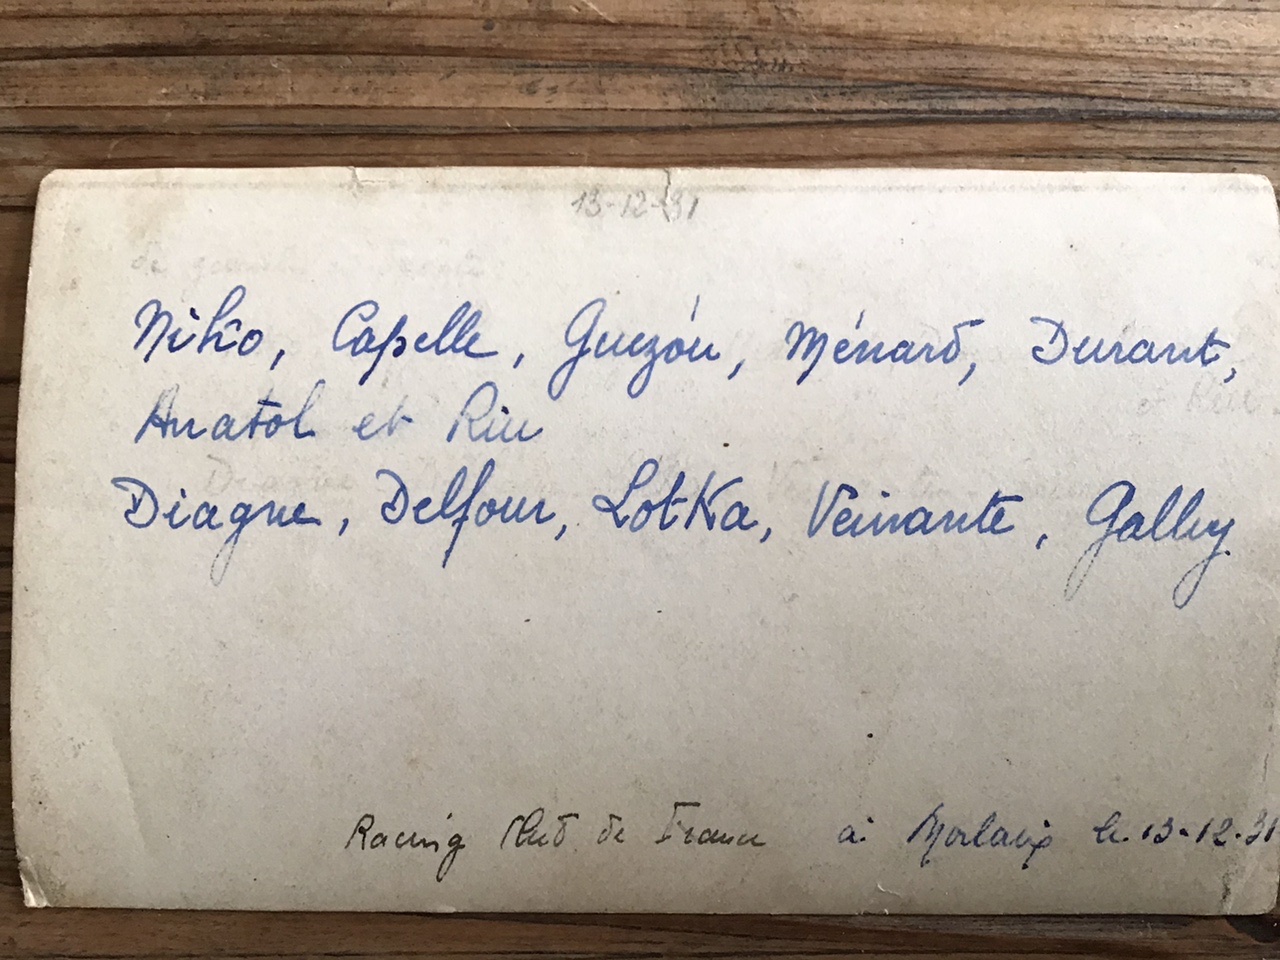 13-12-31
de gauche à droite
Niko, Capelle, Guezou, Ménard, Durant,
Anatol et Riu
et Riu
Diagne, Delfour, Lotka, Veinante, Galley
Racing Club de France à Morlaix le 13-12-31